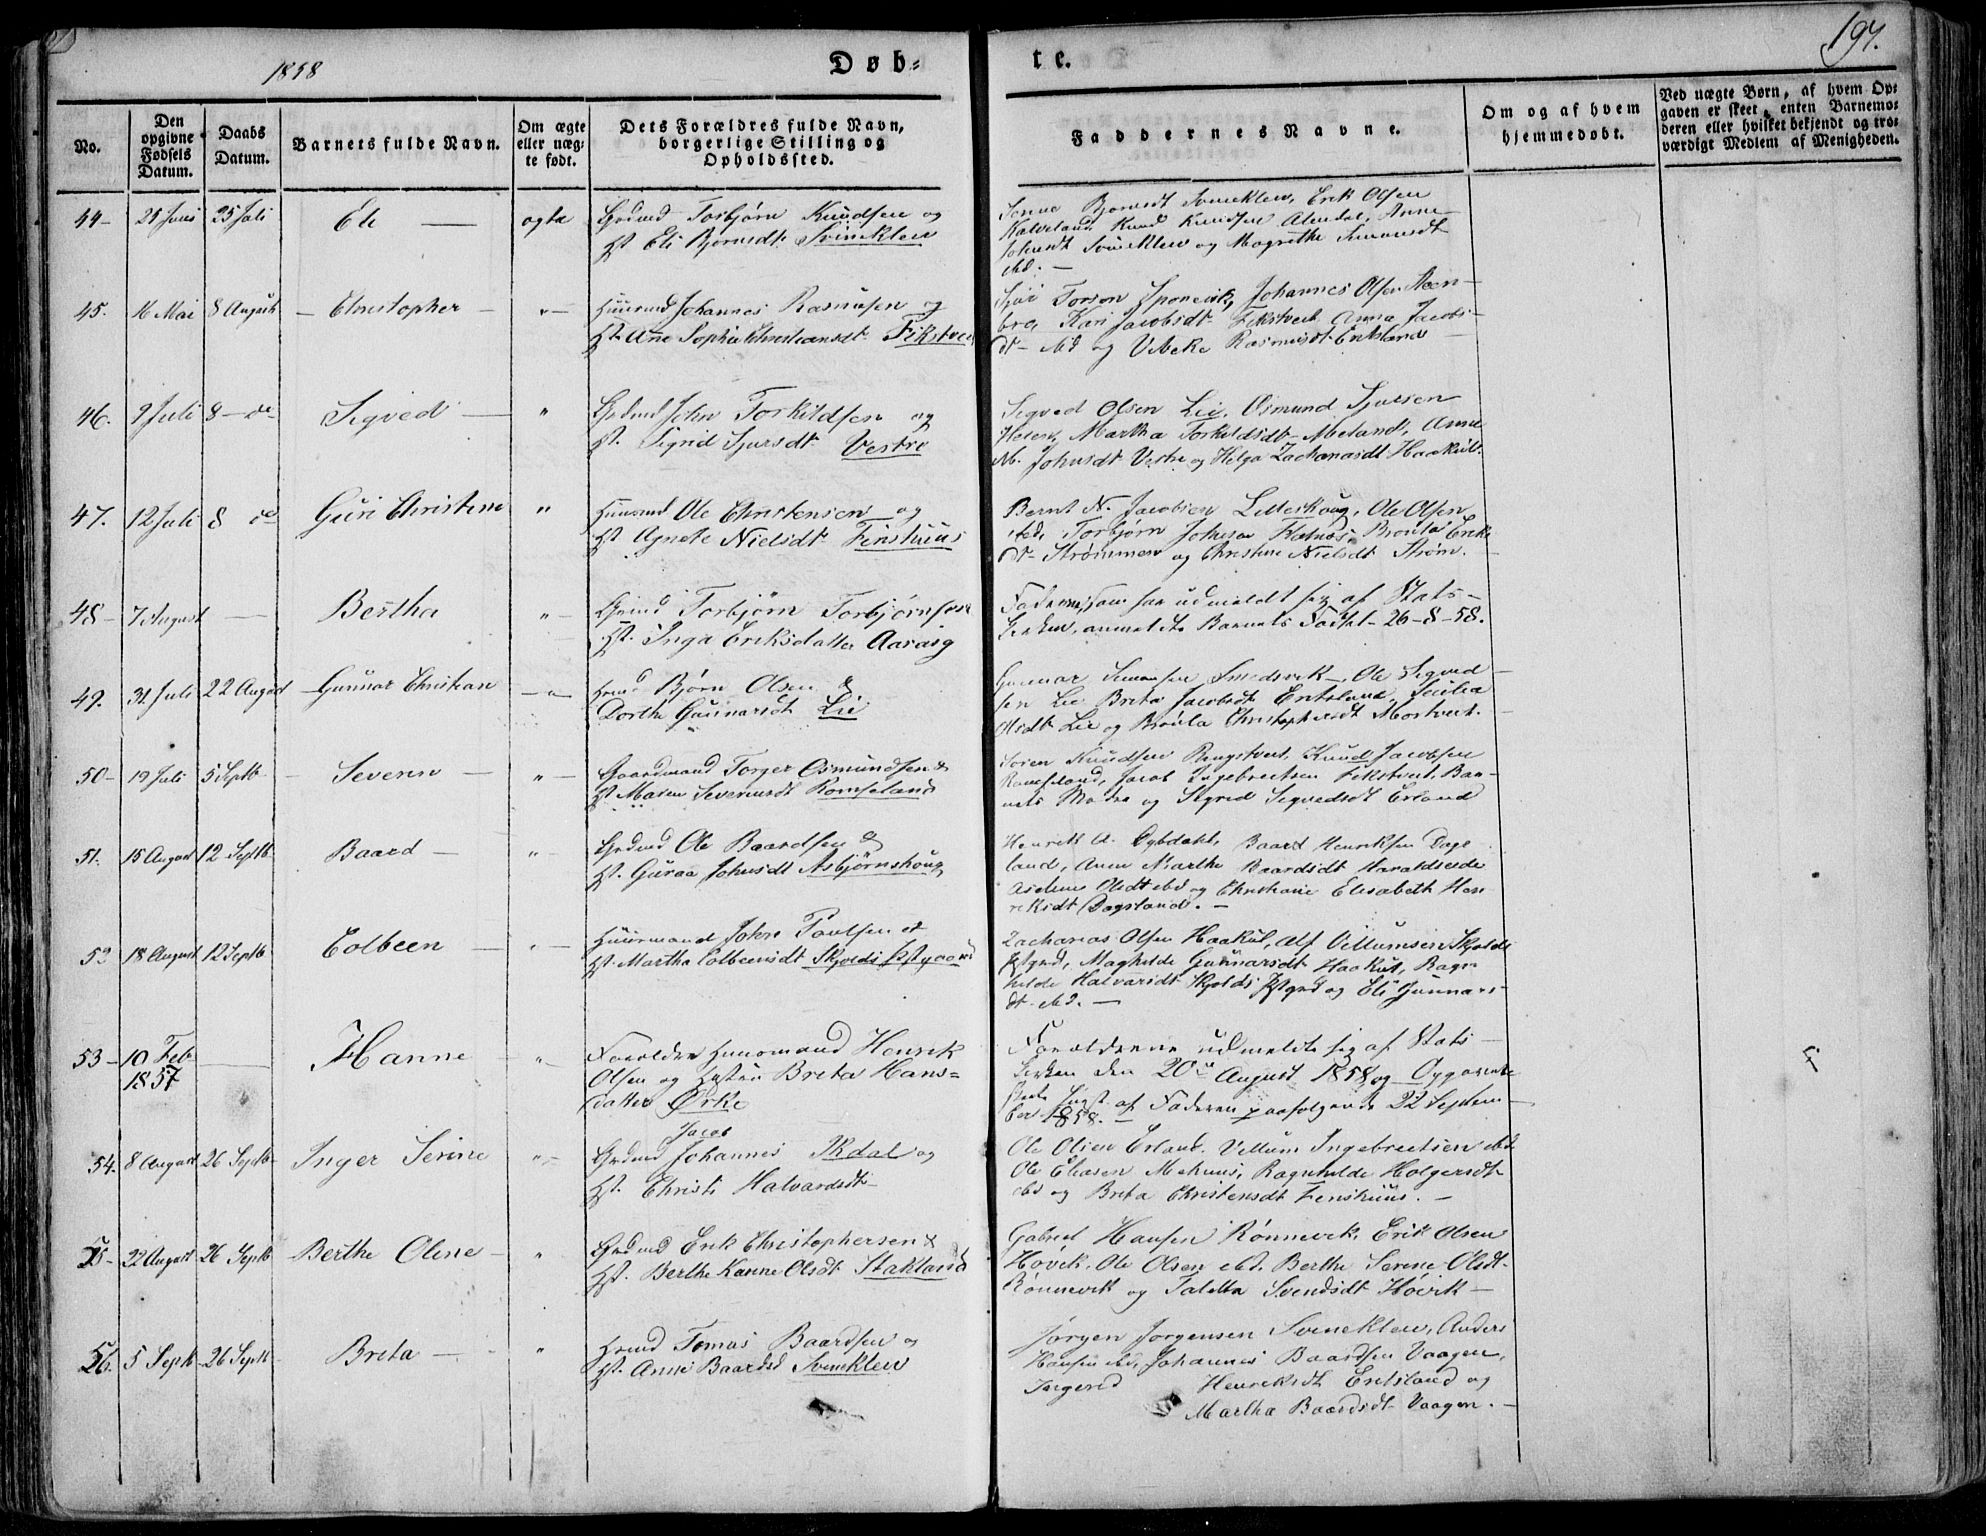 1858
Døb=
te.
197.
No.
Den opgivne Fødsels Datum.
Daabs Datum.
Barnets fulde Navn.
Om ægte eller uæg= te født.
Dets Forældres fulde Navn, borgerlige Stilling og Opholdssted.
Faddernes Navne.
Om og af hvem hjemmedøbt.
Ved uægte Børn, af hvem Op= gaven er skeet, enten Barnemo= deren eller hvilket bekjendt og tro= værdigt Medlem af Menigheden.
44- 25 Juli Eli — ægte
Torbjørn Knudsen og
Hst. Eli Bjørnsdt. Svineklev
Bjørnsdt Svineklew, Erik Olsen
Knud Knudsen Anne
Johnsdt Svineklew og Magrethe Simonsdt
ibd. —
45. 16 Mai 8 August — Christopher — "—
Huusmd Johannes Rasmusen og
Hst. Ane Sophie Christiansdt. Fikstveit
Johannes Olsen Steen-
bro, Kari Jacobsdt. Fikstveit Anna Jacobs-
dt- ibd og Vibeke Rasmusdt Erksland —
46. 9 Juli 8 — de Segved — "
John Torkildsen og
Hst. Sigrid Sjursdt. Vestre
Segved Olsen Lie, Osmund Sjursen
Martha Torkildsdt. Meland, Anne
M. Johnsdt Vestre og Helga Zachariasdt Haakul.
47. 12 Juli 8 de Guri Christine "
Huusmd Ole Christensen og
Hst. Agnete Nielsdt. Finshuus
Bernt N. Jacobsen Lilleskoug, Ole Olsen
ibd, Torbjørn Johnsen Brønla Eriks
dt- Strømmen og Christine Nielsdt Strøm.
48- 7 August — Bertha "—
Torbjørn Torbjørnsen
Hst. Inga Eriksdatter Aarvig
Faderen, som har udmeldt sig af Stats-
kirken, anmeldte Barnets Fødsel 26-8-58.
49. 31 Juli 22 August — Gunnar Christian — "
Bjørn Olsen &
Dorthe Gunnarsdt Lie
Gunnar Simonsen Smedsvik, Ole Segved-
sen Lie Brita Jacobsdt Erksland, Scilia
Olsdt Lie og Brønla Christophersdt Mostveit. —
50- 19 Juli 5 Septb. — Severin — "—
Gaardmand Torger Osmundsen &
Hst. Maren Severinsdt Romseland
Søren Knudsen Ringstveit, Knud Jacobsen
Romseland, Jacob Ingebretsen Fikstveit, Bar-
nets Moder og Sigrid Segvedsdt Erland
51. 15 August 12 Septb. Baard — "
Ole Baardsen &
Hst. Guraa Johnsdt Asbjørnshoug
Henrik A. Dybdahl, Baard Henriksen Dags
land, Anne Marthe Baardsdt Haraldseide
Olsdt ibd og Christiane Elisabeth Hen
riksdt Dagsland. —
52 18 August 12 Septb. Colbeen — "—
Huusmand John Poulsen et
Hst. Martha Colbeensdt Skjolds Pstgaard
Zacharias Olsen Haakul, Alf Villumsen Skjolds
Pstgrd, Maghilde Gunnarsdt Haakul, Ragn
hilde Halvarsdt Skjolds Pstgrd og Eli Gunnars-
dt. ibd. —
53- 10 Feb 1857 — Hanne "
Forældre Huusmand Henrik
Olsen og Hustru Brita Hans=
datter Ørke
Forældrene udmeldte sig af Stats-
kirken den 20de August 1858, og Opgaven
af Faderen paafølgende 22 Septem-
ber 1858. —
54. 8 August 26 Septb. Inger Serine "—
Jacob
Johannes Skdal og
Hst. Christi Halvardsdt
Ole Olsen Erland, Villum Ingebretsen ibd
Ole Eliasen Mehuus, Ragnhilde Holgersdt
ibd og Brita Christensdt Finshuus. —
55- 22 August 26 Septb Berthe Oline — "
Erik Christophersen &
Hst. Berthe Kanne Olsdt Stakland
Gabriel Hansen Rønnevik, Erik Olsen
Høvik, Ole Olsen ibd, Berthe Serine Olsdt.
Rønnevik og Taletta Svendsdt Høvik —
56. 5 Septb. 26 Septb. Brita — "
Tomas Baardsen og
Hst. Anne Baardsd Svineklev
Jørgen Jørgensen Svineklew, Anders
Hansen ibd, Johannes Baardsen Vaagen,
Ingerid Henriksdt Erksland og
Martha Baardsdt. Vaagen. —